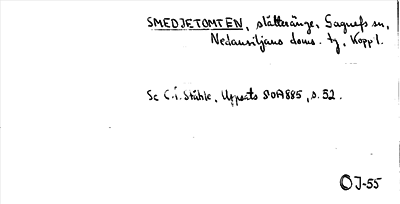 SMEDJETOMTEN, slåtteränge, Gagnefs sn,
Nedansiljans doms. tg, Koppl.
Se C.I. Ståhle, Uppsats SOA 885, s. 52.
OJ-55